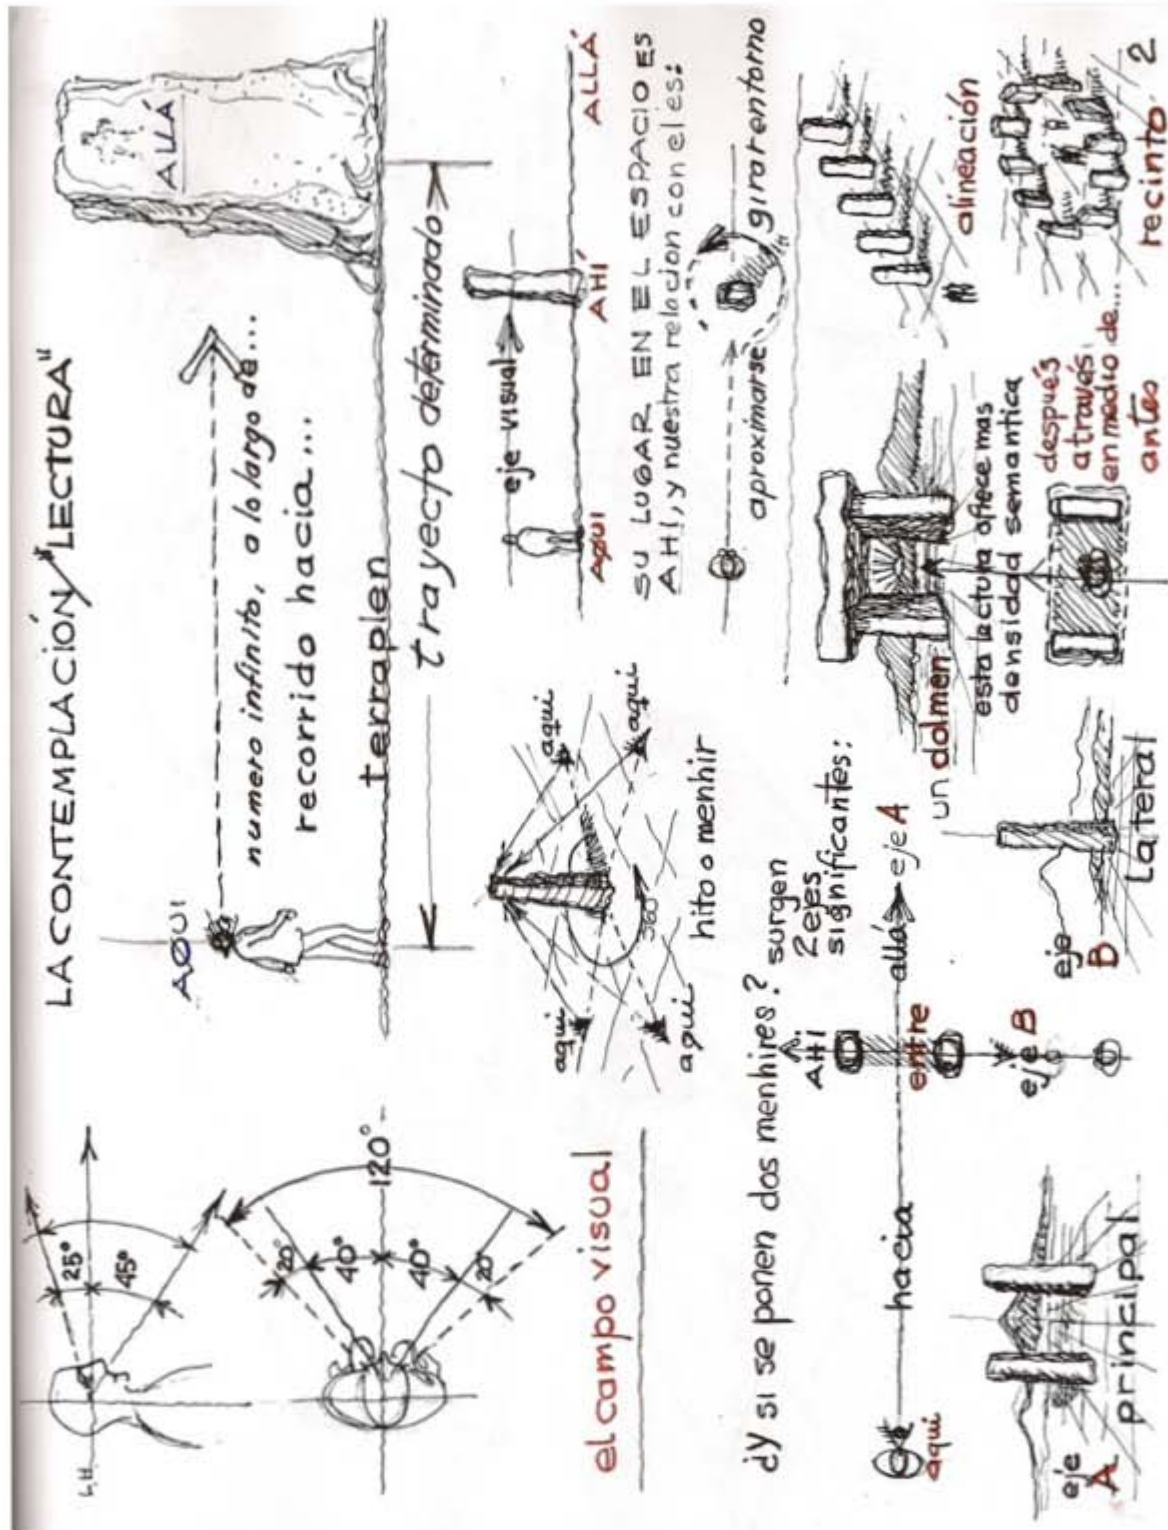 LA CONTEMPLACIÓN/"LECTURA"
L.H.
25°
45°
20°
40°
40°
20°
120°
el campo visual
AQUI
ALLÁ
numero infinito, a lo largo de...
recorrido hacia...
terraplen
trayecto determinado
aqui
aqui
aqui
aqui
360°
hito o menhir
eje visual
AQUI
AHÍ
ALLÁ
SU LUGAR EN EL ESPACIO ES
AHI, y nuestra relacion con el es:
aproximarse
girar entorno
¿Y si se ponen dos menhires?
surgen
2 ejes
significantes:
aqui
hacia
AHI
entre
allá
eje A
eje B
eje
A
principal
eje
B
lateral
un dolmen
esta lectura ofrece mas
densidad semantica
después
a través
en medio de...
antes
alineación
recinto
2